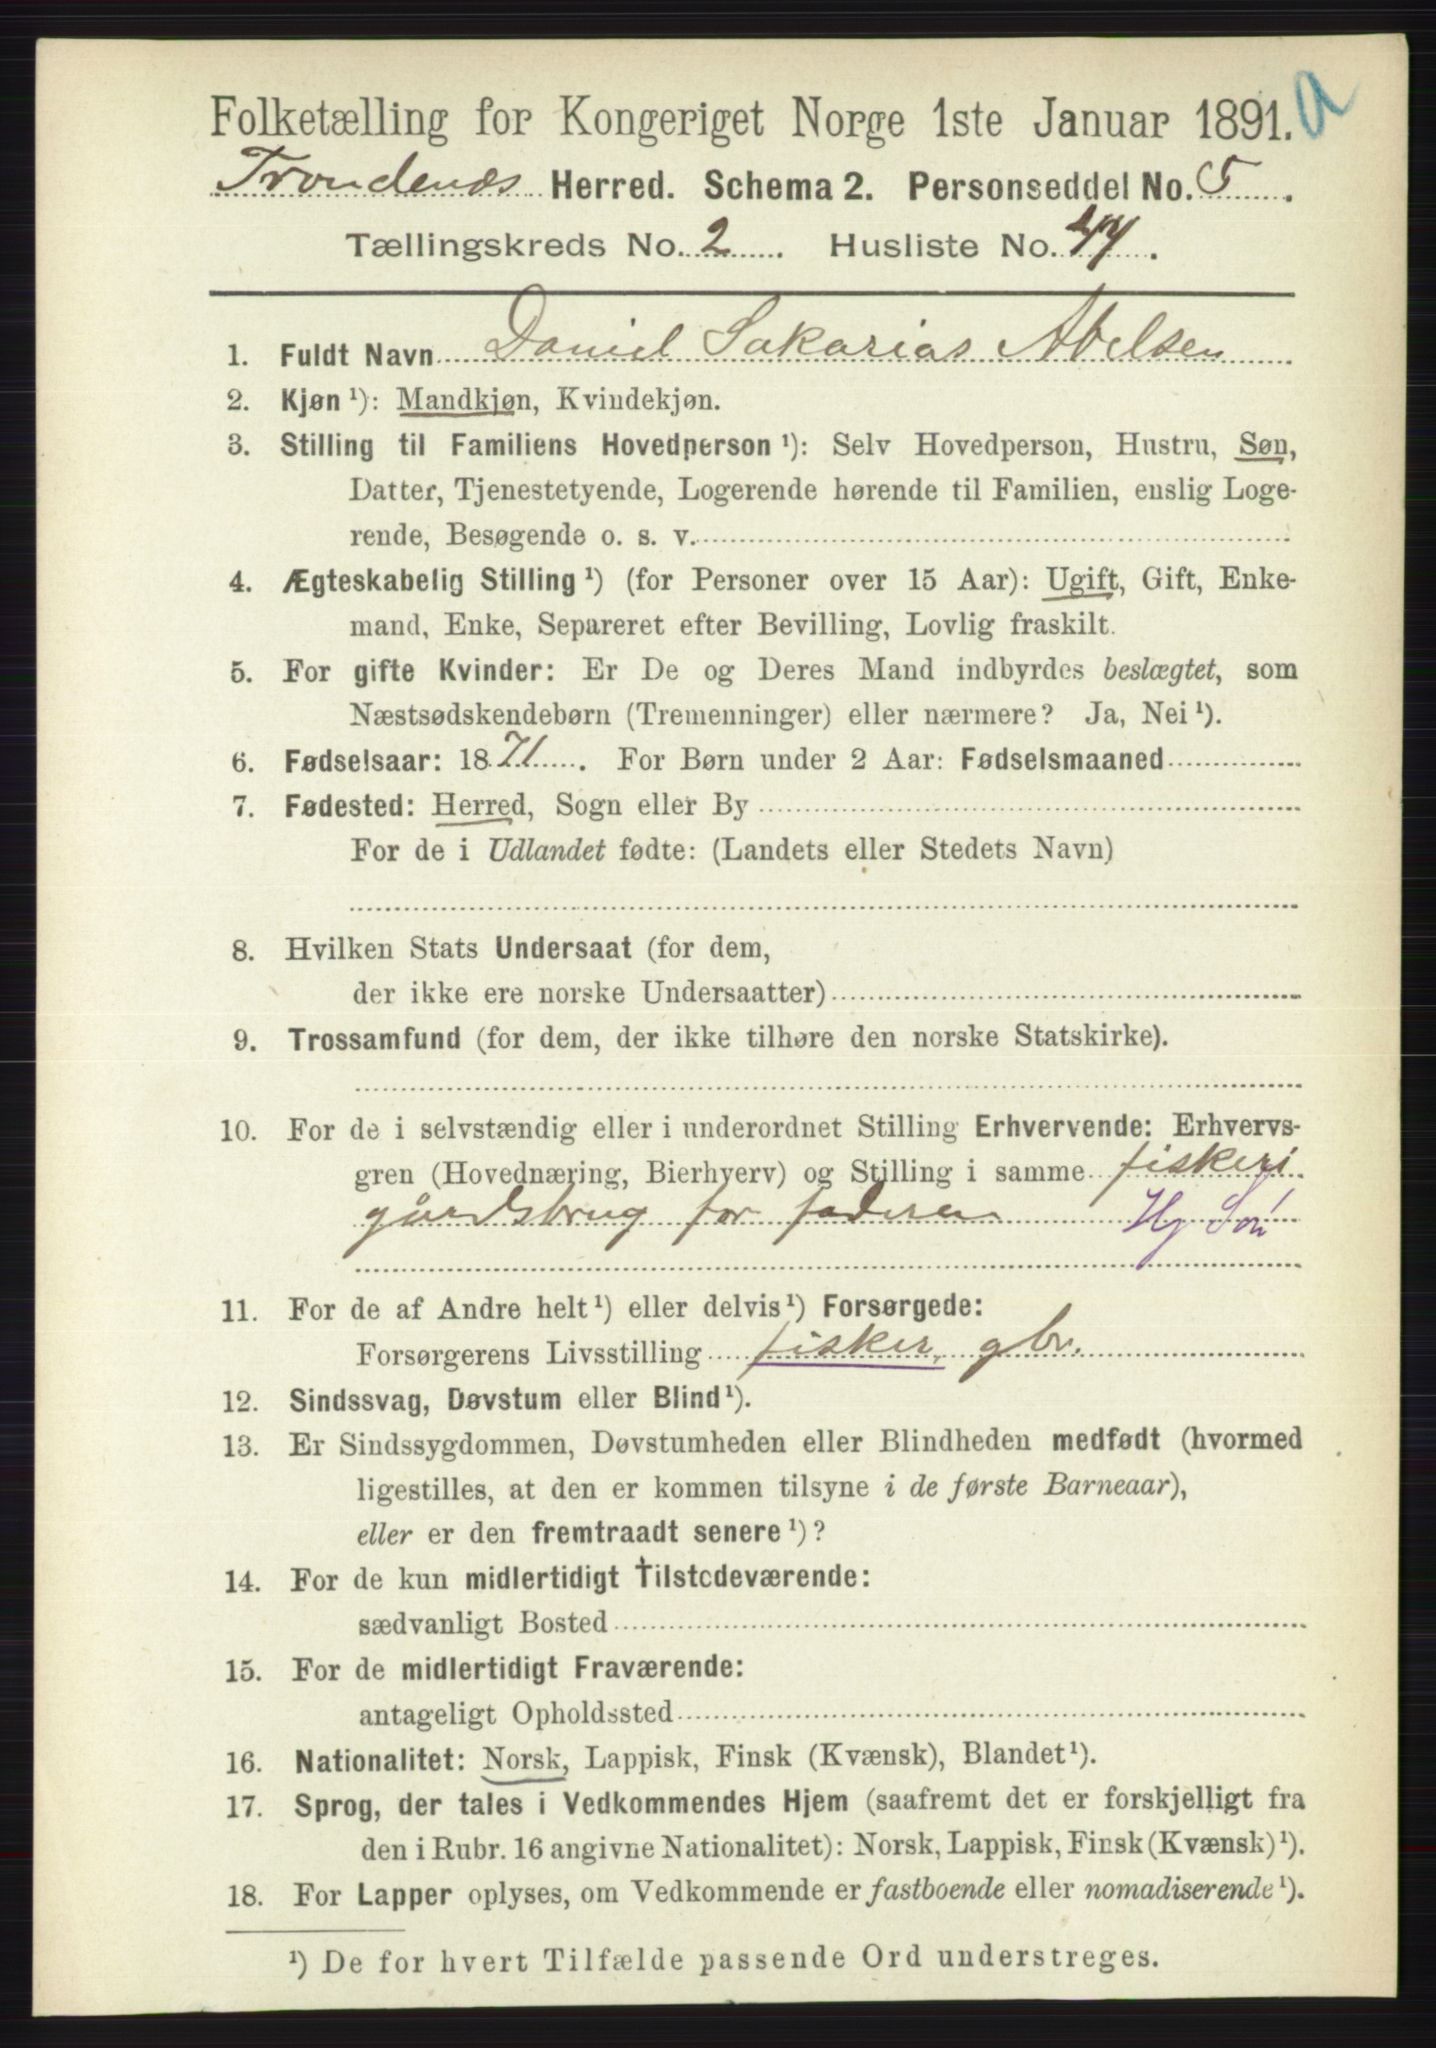 Folketælling for Kongeriget Norge 1ste Januar 1891. a
Trondenæs Herred. Schema 2. Personseddel No. 5.
Tællingskreds No. 2. Husliste No. 47.
1. Fuldt Navn Daniel Sakarias Abelsen
2. Kjøn ¹): Mandkjøn, Kvindekjøn.
3. Stilling til Familiens Hovedperson ¹): Selv Hovedperson, Hustru, Søn,
Datter, Tjenestetyende, Logerende hørende til Familien, enslig Loge-
rende, Besøgende o. s. v.
4. Ægteskabelig Stilling ¹) (for Personer over 15 Aar): Ugift, Gift, Enke-
mand, Enke, Separeret efter Bevilling, Lovlig fraskilt.
5. For gifte Kvinder: Er De og Deres Mand indbyrdes beslægtet, som
Næstsødskendebørn (Tremenninger) eller nærmere? Ja, Nei ¹).
6. Fødselsaar: 1871. For Børn under 2 Aar: Fødselsmaaned
7. Fødested: Herred, Sogn eller By
For de i Udlandet fødte: (Landets eller Stedets Navn)
8. Hvilken Stats Undersaat (for dem,
der ikke ere norske Undersaatter)
9. Trossamfund (for dem, der ikke tilhøre den norske Statskirke).
10. For de i selvstændig eller i underordnet Stilling Erhvervende: Erhvervs-
gren (Hovednæring, Bierhverv) og Stilling i samme fiskeri
gårdsbrug for faderen Hj Søn
11. For de af Andre helt ¹) eller delvis ¹) Forsørgede:
Forsørgerens Livsstilling fisker, gbr.
12. Sindssvag, Døvstum eller Blind ¹).
13. Er Sindssygdommen, Døvstumheden eller Blindheden medfødt (hvormed
ligestilles, at den er kommen tilsyne i de første Barneaar),
eller er den fremtraadt senere ¹)?
14. For de kun midlertidigt Tilstedeværende:
sædvanligt Bosted
15. For de midlertidigt Fraværende:
antageligt Opholdssted
16. Nationalitet: Norsk, Lappisk, Finsk (Kvænsk), Blandet ¹).
17. Sprog, der tales i Vedkommendes Hjem (saafremt det er forskjelligt fra
den i Rubr. 16 angivne Nationalitet): Norsk, Lappisk, Finsk (Kvænsk) ¹).
18. For Lapper oplyses, om Vedkommende er fastboende eller nomadiserende ¹).
¹) De for hvert Tilfælde passende Ord understreges.